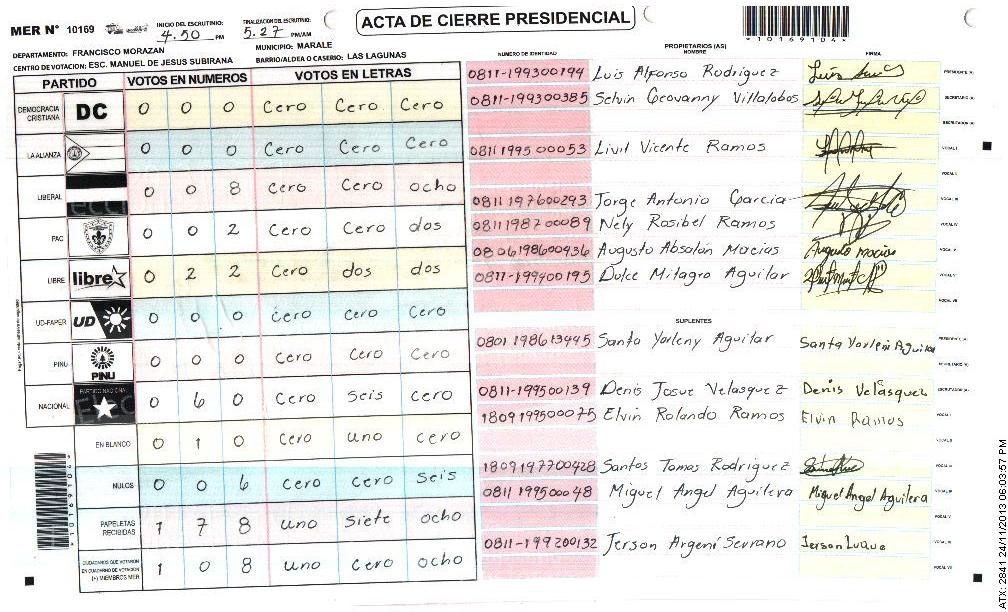 ACTA DE CIERRE PRESIDENCIAL
MER N° 10169
INICIO DEL ESCRUTINIO: 4.50 PM
FINALIZACION DEL ESCRUTINIO: 5.27 PM/AM
*10169104*
DEPARTAMENTO: FRANCISCO MORAZAN
MUNICIPIO: MARALE
CENTRO DE VOTACION: ESC. MANUEL DE JESUS SUBIRANA
BARRIO/ALDEA O CASERIO: LAS LAGUNAS
PARTIDO VOTOS EN NUMEROS VOTOS EN LETRAS
DEMOCRACIA CRISTIANA DC 0 0 0 Cero Cero Cero
LA ALIANZA 0 0 0 Cero Cero Cero
LIBERAL 0 0 8 Cero Cero ocho
PAC 0 0 2 Cero Cero dos
LIBRE libre 0 2 2 Cero dos dos
UD-FAPER UD 0 0 0 Cero Cero Cero
PINU PINU 0 0 0 Cero Cero Cero
NACIONAL PARTIDO NACIONAL 0 6 0 Cero Seis Cero
EN BLANCO 0 1 0 Cero uno Cero
NULOS 0 0 6 Cero Cero Seis
PAPELETAS RECIBIDAS 1 7 8 uno Siete ocho
CIUDADANOS QUE VOTARON EN CUADERNO DE VOTACION (+) MIEMBROS MER 1 0 8 uno Cero ocho
*10169104*
PROPIETARIOS (AS)
NUMERO DE IDENTIDAD NOMBRE FIRMA
0811-199300194 Luis Alfonso Rodriguez PRESIDENTE (A)
0811-199300385 Selvin Geovanny Villalobos SECRETARIO (A)
ESCRUTADOR (A)
0811199500053 Livil Vicente Ramos VOCAL I
VOCAL II
0811197600293 Jorge Antonio Garcia VOCAL III
0811198700089 Nely Rosibel Ramos VOCAL IV
0806198600436 Augusto Absalón Macias Augusto macias VOCAL V
0811-199400195 Dulce Milagro Aguilar VOCAL VI
VOCAL VII
SUPLENTES
0801198613445 Santa Yorleny Aguilar Santa Yorleni Aguilar PRESIDENTE (A)
SECRETARIO (A)
0811-199500139 Denis Josue Velasquez Denis Velasquez ESCRUTADOR (A)
1809199500075 Elvin Rolando Ramos Elvin Ramos VOCAL I
VOCAL II
1809197700428 Santos Tomas Rodriguez VOCAL III
0811199500048 Miguel Angel Aguilera Miguel Angel Aguilera VOCAL IV
VOCAL V
0811-199200132 Jerson Argeni Serrano VOCAL VI
VOCAL VII
ATX: 2841 24/11/2013 06:03:57 PM